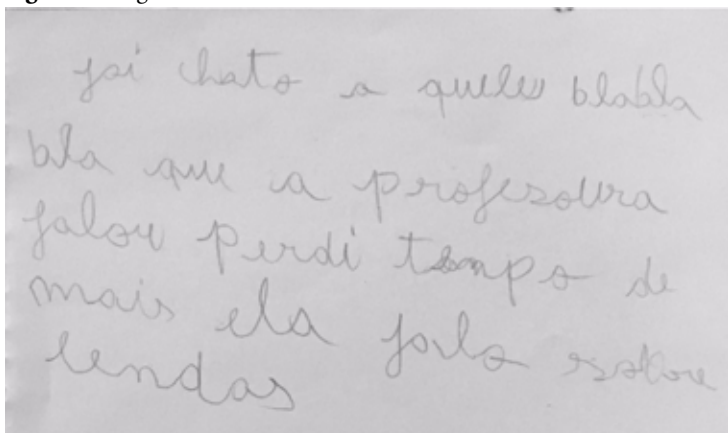 foi chato a queles blabla
bla que a profesoura
falou perdi tempo de
mais ela falo sobre
lendas